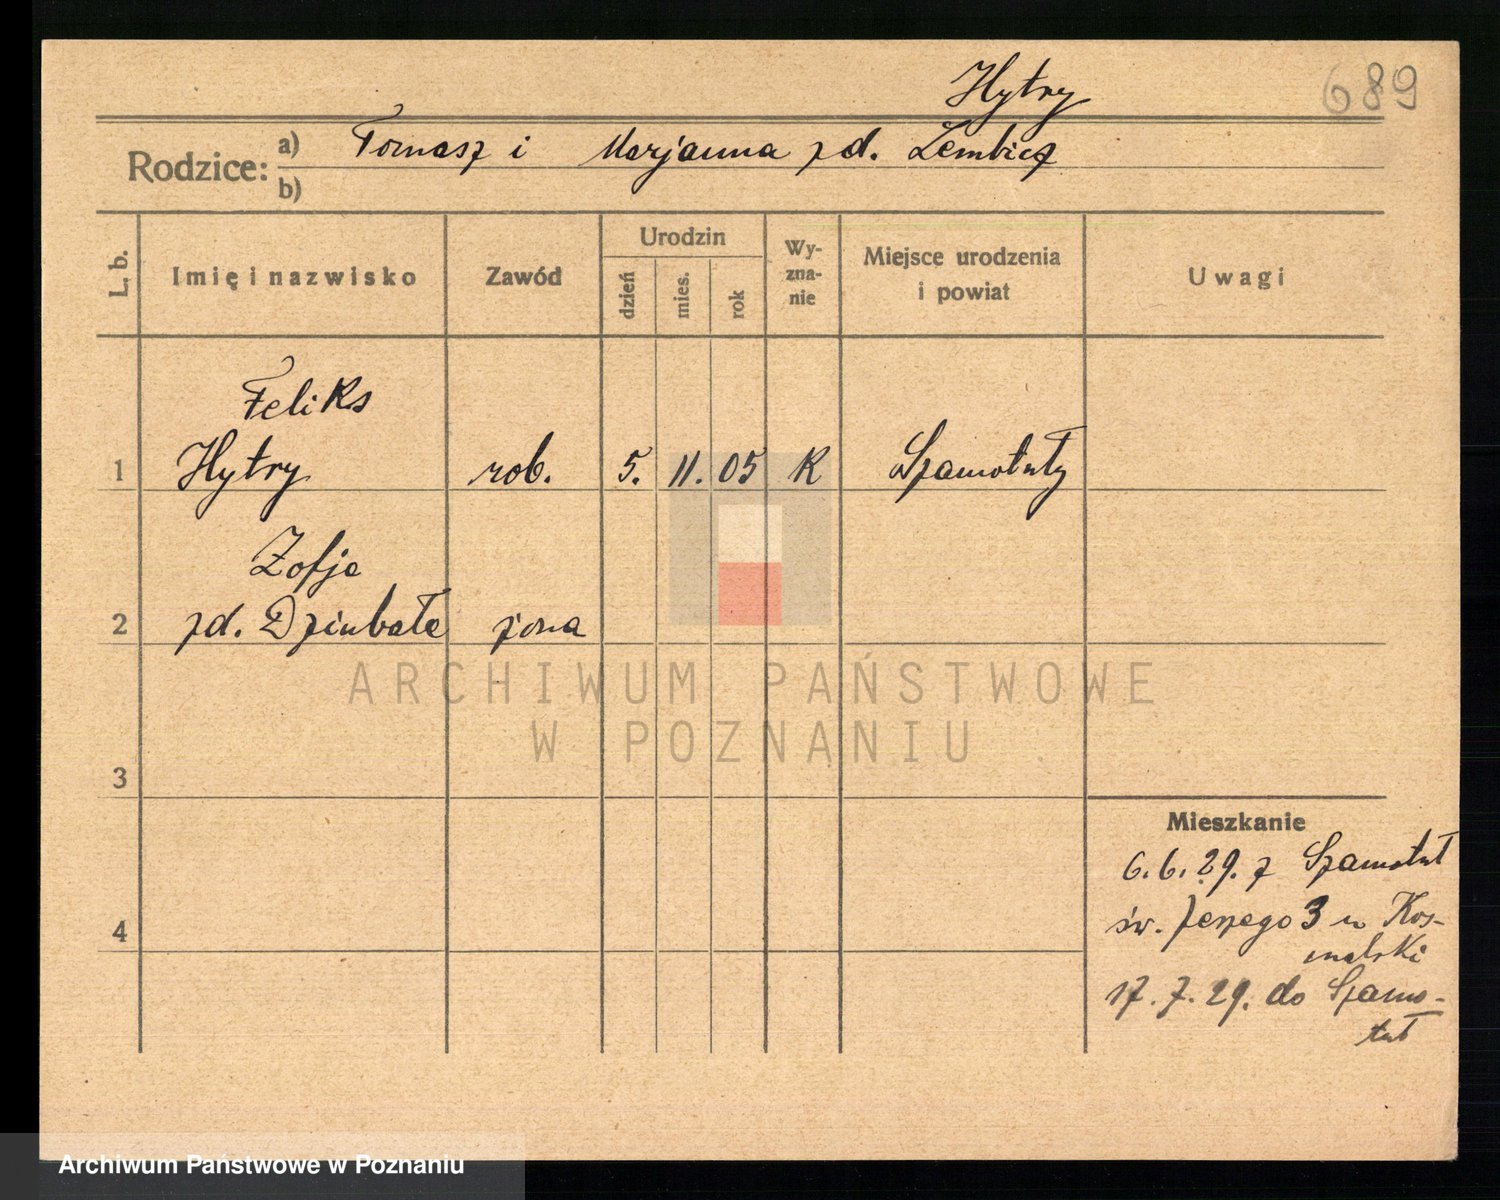 Hytry
689
Rodzice: a) Tomasz i Marjanna zd. Lembicz
b)
L. b.
Imię i nazwisko
Zawód
Urodzin
dzień
mies.
rok
Wy-
zna-
nie
Miejsce urodzenia
i powiat
Uwagi
Feliks
1 Hytry rob. 5. 11. 05 K Szamotuły
Zofja
2 zd. Dziubała żona
ARCHIWUM PAŃSTWOWE
W POZNANIU
3
Mieszkanie
6.6.29. z Szamotuł
św. Jerzego 3 u Kos-
4
malski
17.7.29. do Szamo-
tuł
Archiwum Państwowe w Poznaniu